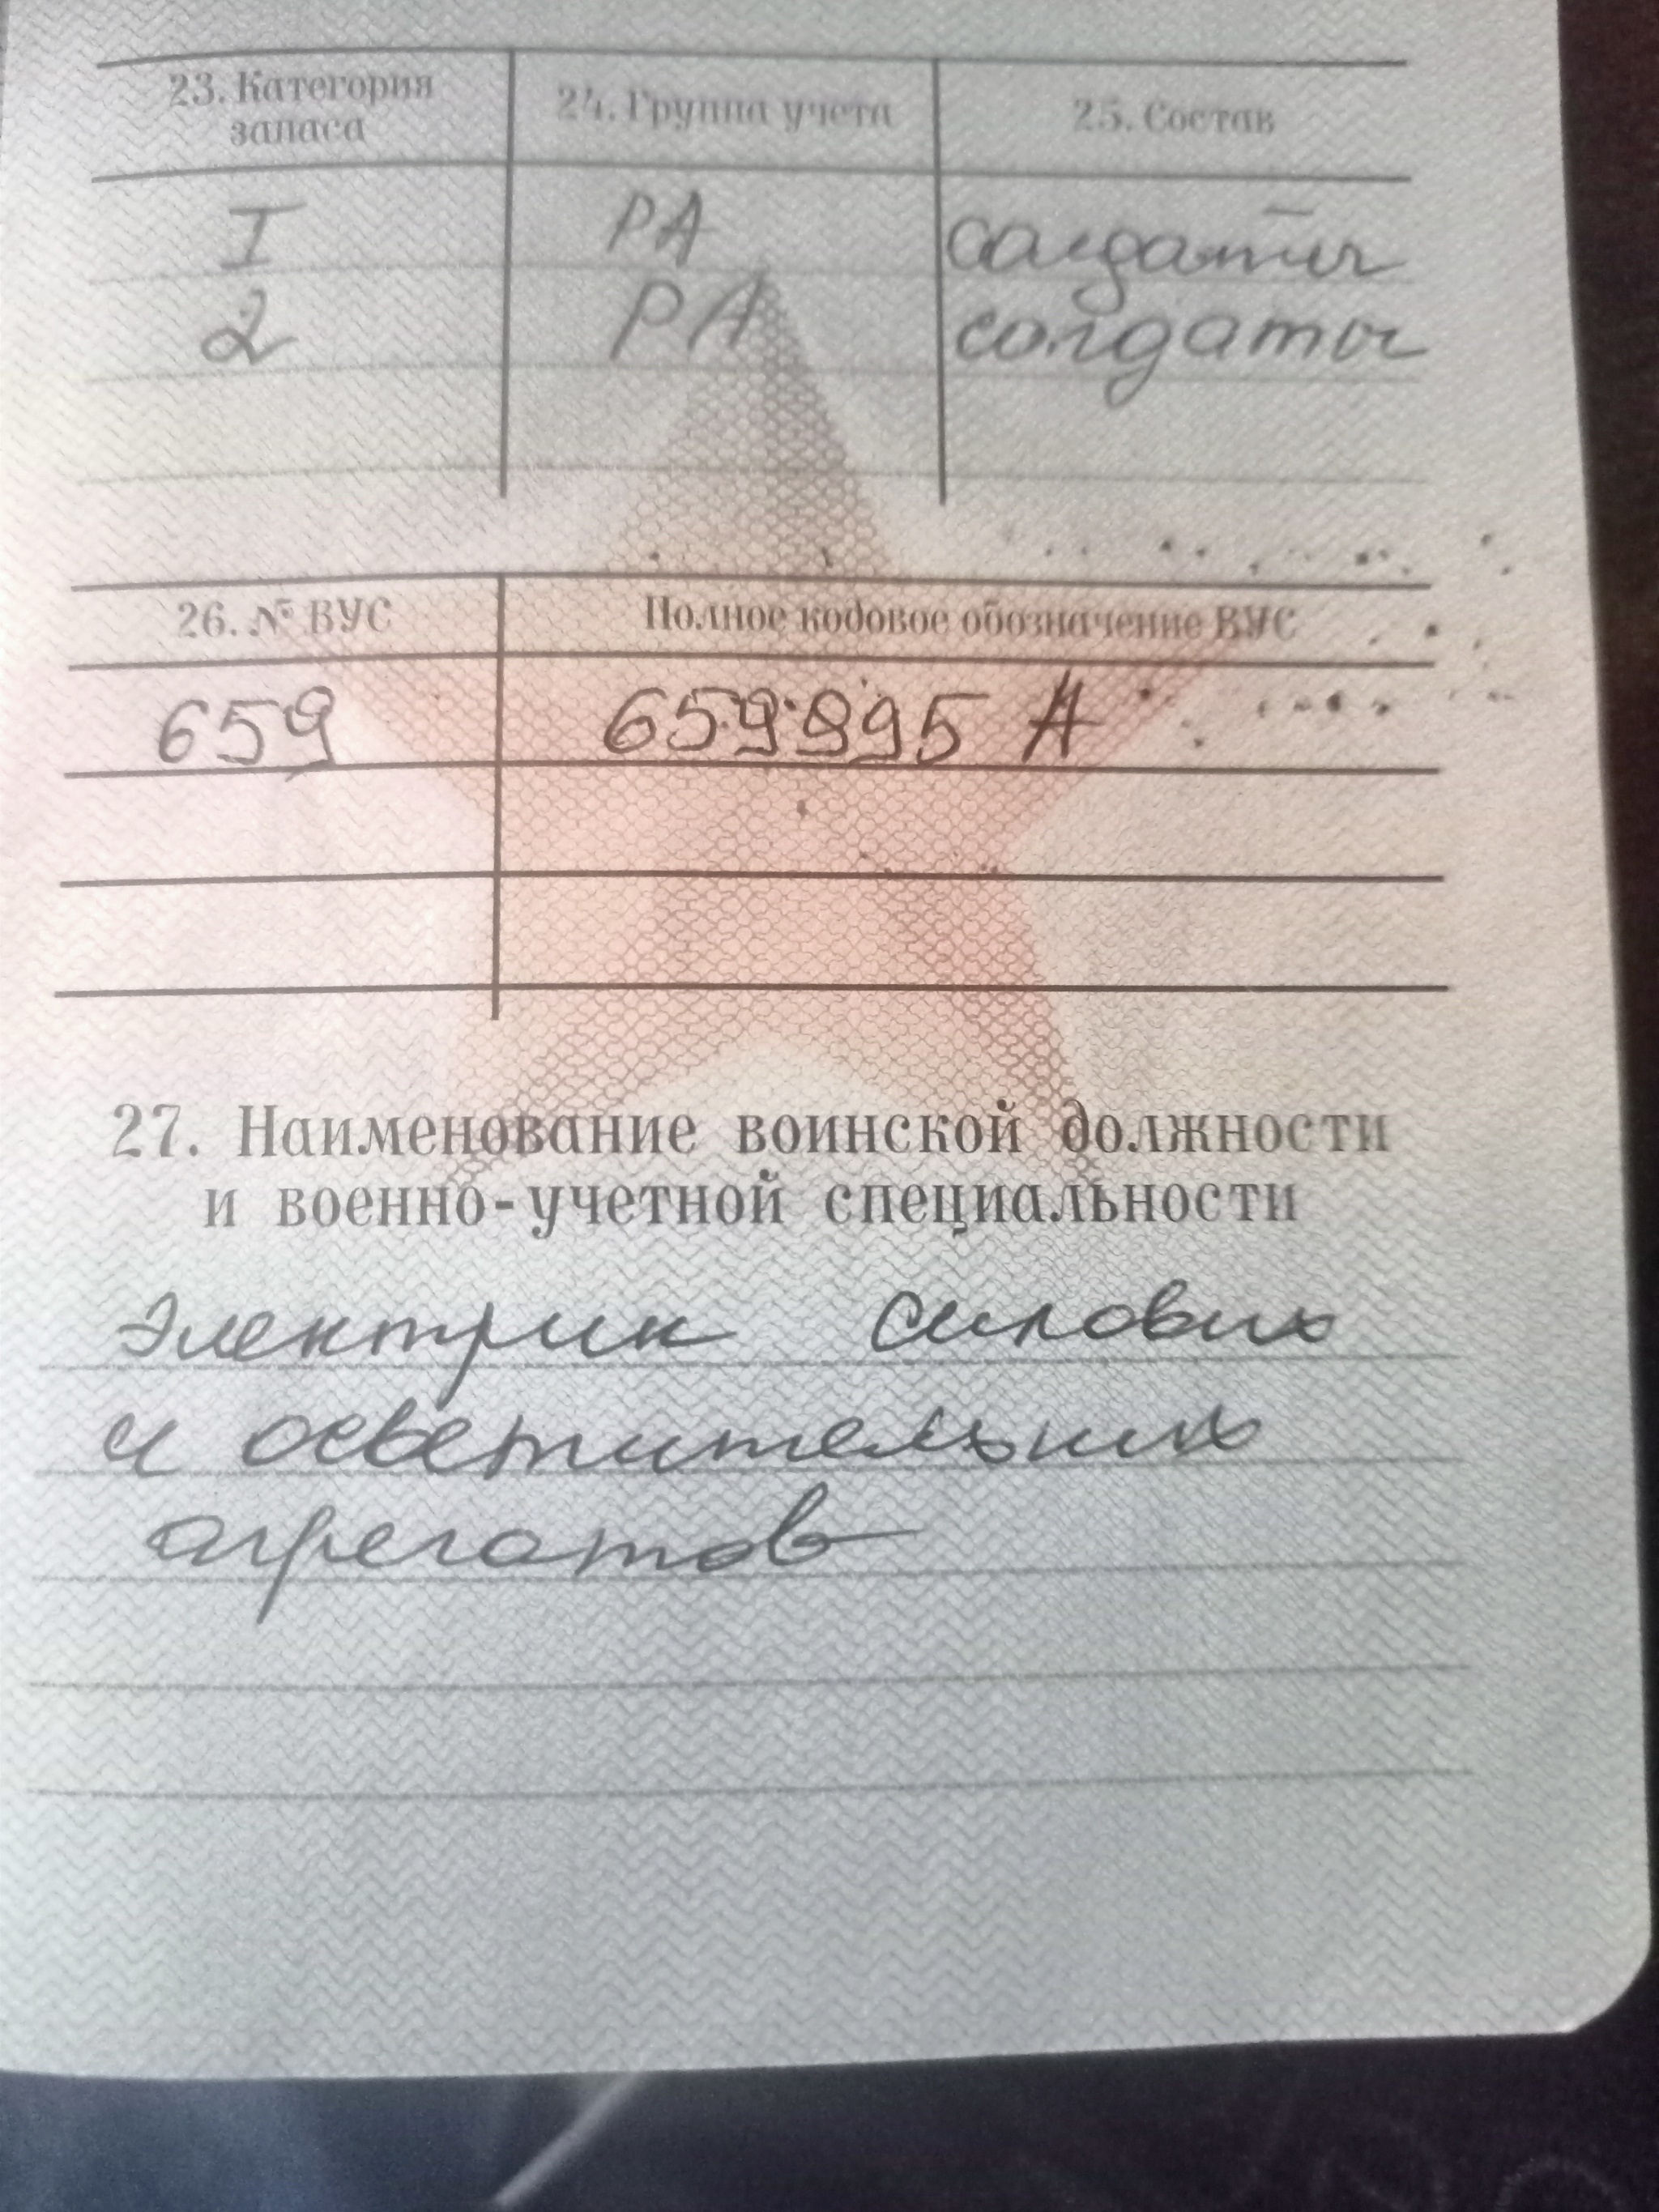 23. Категория запаса
24. Группа учета
25. Состав
I РА солдаты
2 РА солдаты
26. № ВУС Полное кодовое обозначение ВУС
659 659995 А
27. Наименование воинской должности
и военно-учетной специальности
электрик силових
и осветительних
агрегатов